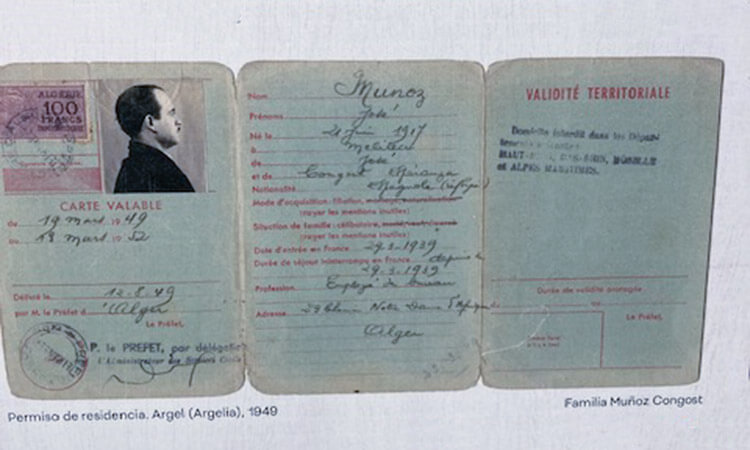 ALGERIE
100
FRANCS
CARTE VALABLE
du 19 Mars 1949
au 18 Mars 1952
Délivré le 12-8-49
par M. le Préfet d'Alger
Le Préfet,
P. le PREFET, par délégation
L'Administrateur des Services Civils
Nom Munoz
Prénoms José
Né le 21 Juin 1917
à
de José
et de Congost
Nationalité Espagnole
Mode d'acquisition: filiation, mariage, naturalisation
(rayer les mentions inutiles)
Situation de famille: célibataire, marié, veuf, divorcé
(rayer les mentions inutiles)
Date d'entrée en France 29-3-1939
Durée de séjour ininterrompu en France depuis le
29-3-1939
Profession Employé de bureau
Adresse 29 Chemin Notre Dame d'Afrique
Alger
VALIDITÉ TERRITORIALE
Domicile interdit dans les Départ
HAUT-RHIN, BAS-RHIN, MOSELLE
et ALPES MARITIMES.
Durée de validité prorogée
Le Préfet,
Permiso de residencia. Argel (Argelia), 1949
Familia Muñoz Congost